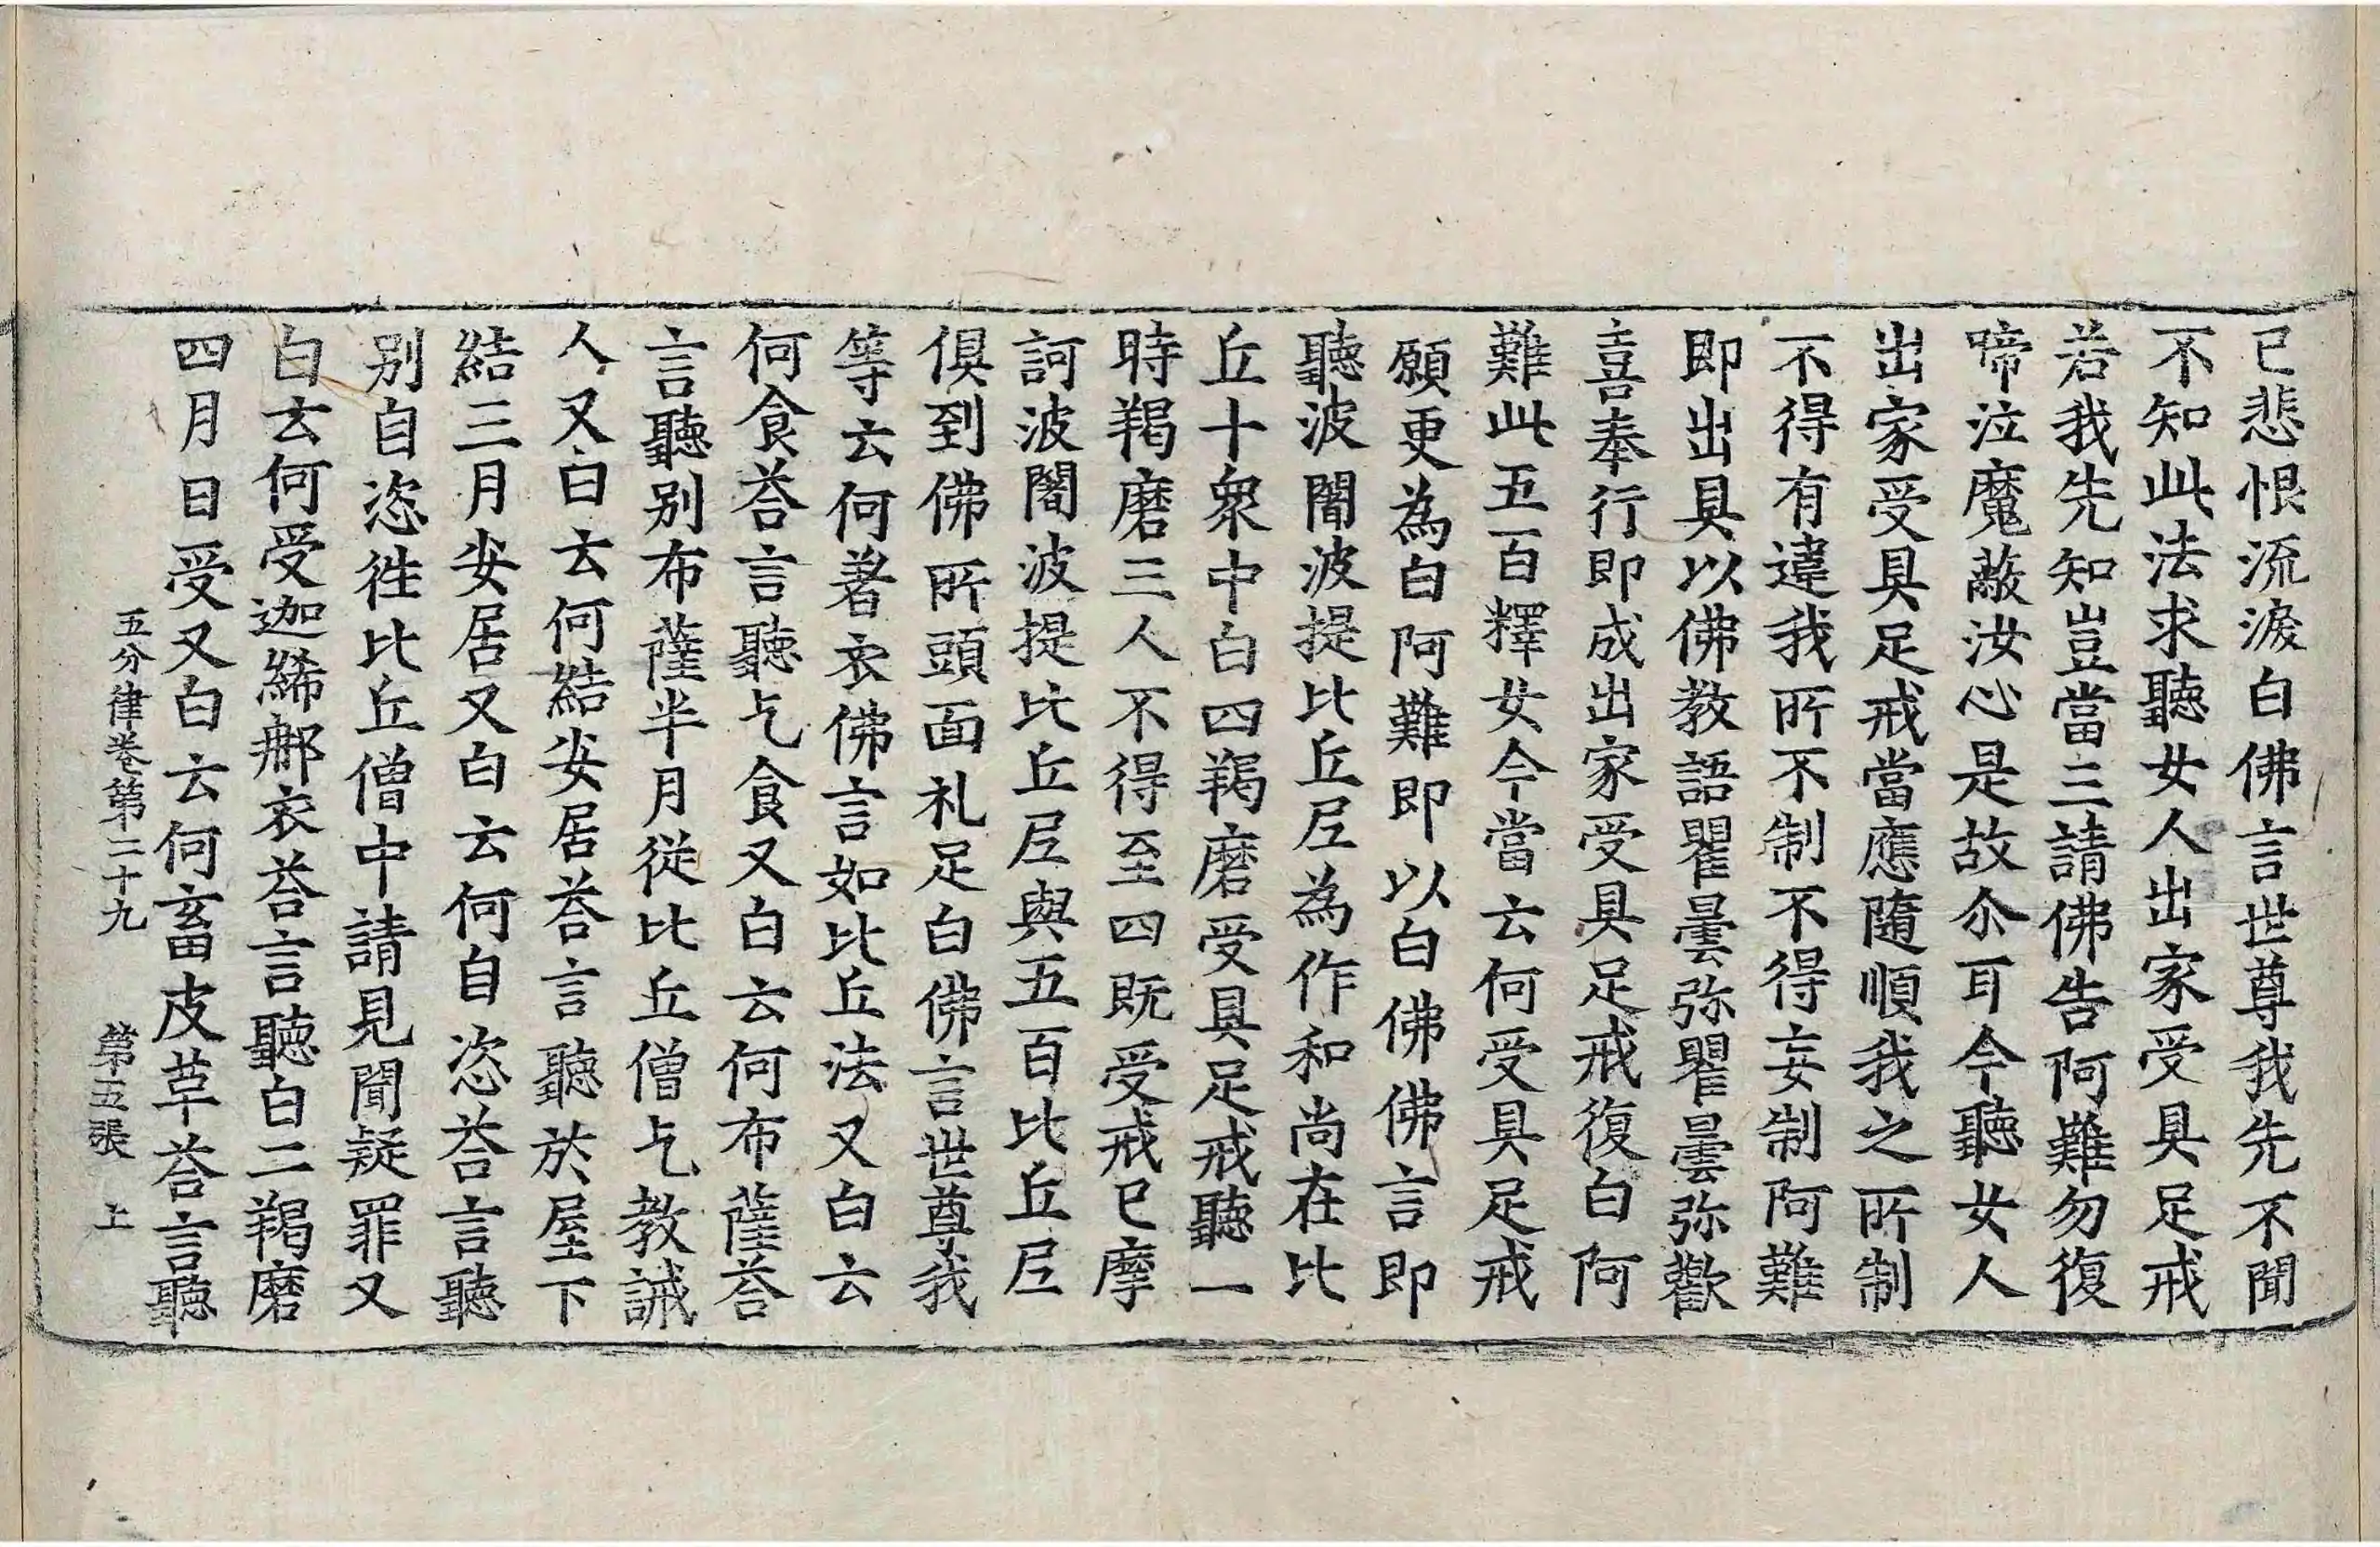 已悲恨流淚白佛言世尊我先不聞
不知此法求聽女人出家受具足戒
若我先知豈當三請佛告阿難勿復
啼泣魔蔽汝心是故尒耳今聽女人
出家受具足戒當應隨順我之所制
不得有違我所不制不得妄制阿難
即出具以佛教語瞿曇弥瞿曇弥歡
喜奉行即成出家受具足戒復白阿
難此五百釋女今當云何受具足戒
願更為白阿難即以白佛佛言即
聽波闍波提比丘尼為作和尚在比
丘十衆中白四羯磨受具足戒聽一
時羯磨三人不得至四既受戒已摩
訶波闍波提比丘尼與五百比丘尼
俱到佛所頭面礼足白佛言世尊我
等云何著衣佛言如比丘法又白云
何食荅言聽乞食又白云何布薩荅
言聽別布薩半月從比丘僧乞教誡
人又白云何結安居荅言聽於屋下
結三月安居又白云何自恣荅言聽
別自恣徃比丘僧中請見聞疑罪又
白云何受迦絺郍衣荅言聽白二羯磨
四月日受又白云何畜皮革荅言聽
五分律卷第二十九 第五張 上